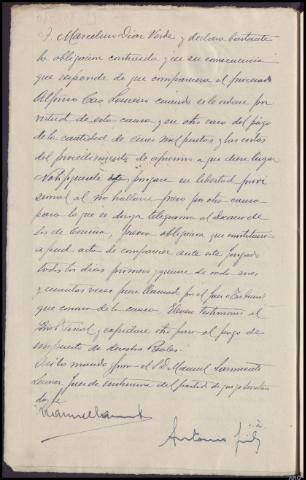 D. Marcelino Diaz Varela y declaro bastante
la obligacion contraida y en su consecuencia
que responde de que comparecera el procesado
Alfonso Cao Loureiro cuando se le ordene por
virtud de esta causa y en otro caso del pago
de la cantidad de cinco mil pesetas y las costas
del procedimiento de apremio a que diere lugar
Notifiquese, pongase en libertad provi
sional si no hallare preso por otra causa
para lo que se dirija telegrama al Decano de
los de Coruña, previa obligacion que constituira
apud acta de comparecer ante este Juzgado
todos los dias primero y quince de cada mes
y cuantas veces fuere llamado por el Juez o Tribunal
que conozca de la causa. Elevese testimonio al
y expidase otro para el pago de
impuesto de derechos Reales.
Asi lo mando y firma el Sr. D. Manuel
Juez de Instruccion del partido de que
doy fe
Manuel
Antonio